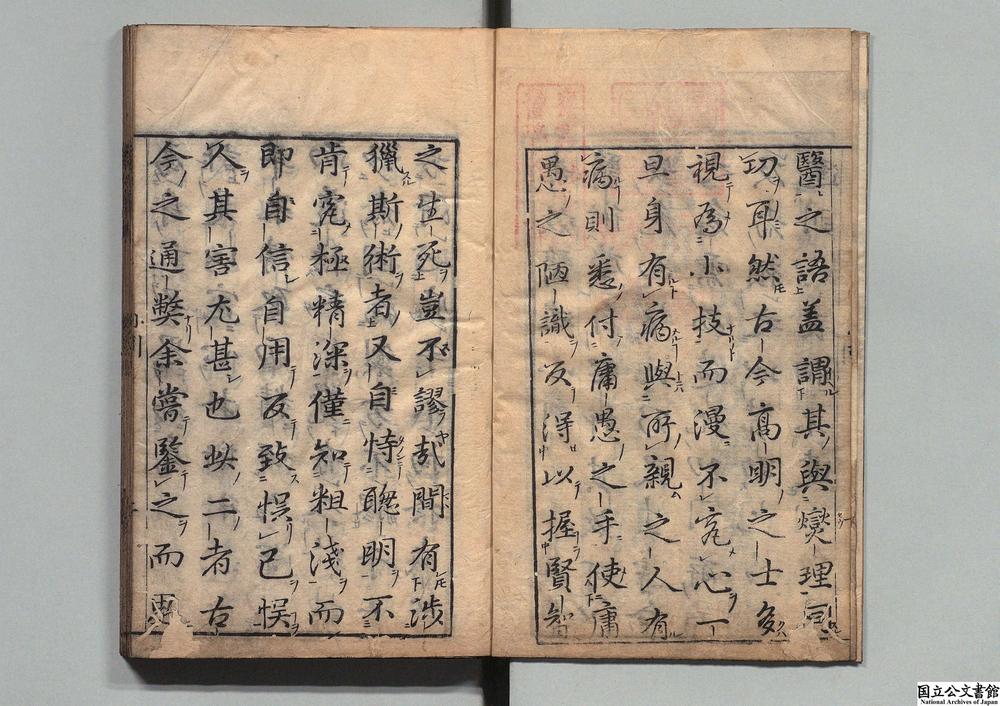 醫之語蓋謂其與燮理同
功耳然古今高明之士多
視為小技而漫不究心一
旦身有病與所親之人有
病則悉付庸愚之手使庸
愚之陋識反得以握賢知
之生死豈不謬哉間有涉
獵斯術者又自恃聰明不
肯究極精深僅知粗淺而
即自信自用反致悞己悞
人其害尤甚也此二者古
今之通弊余嘗鑒之而
国立公文書館
National Archives of Japan